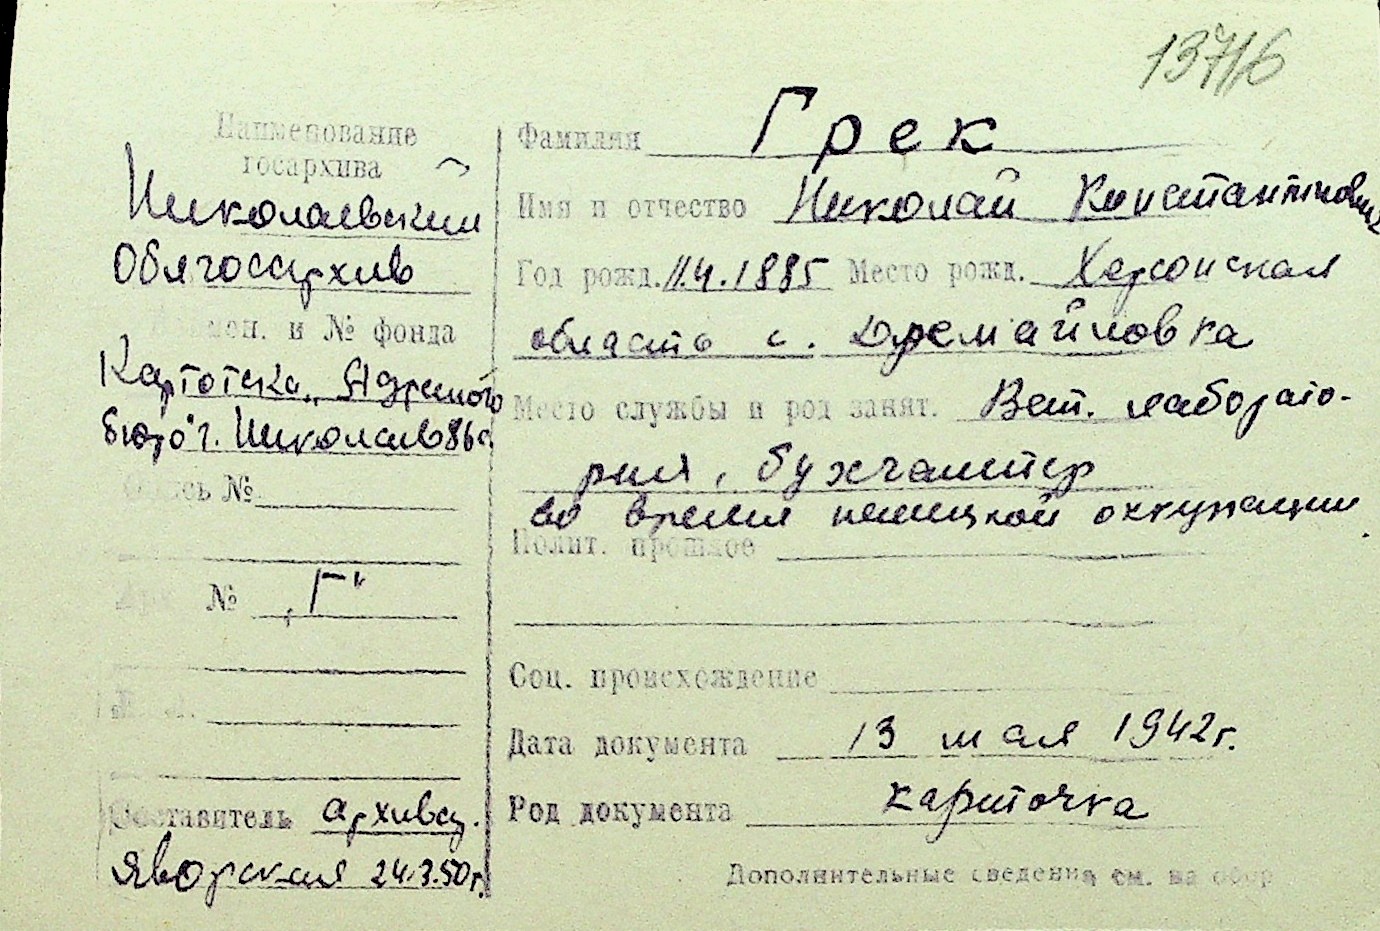 13716
Наименование
госархива
Николаевский
Облгосархив
Наимен. и № фонда
Картотека „Адресного
бюро" г. Николаев
Опись №
Арх. № „Г"
Составитель архивар.
Яворская 24.3.50 г.
Фамилия Грек
Имя и отчество Николай Константинович
Год рожд. 11.4.1885 Место рожд. Херсонская
область с. Дремайловка
Место службы и род занят. Вет. лаборато-
рия, бухгалтер
во время немецкой оккупации.
Полит. прошлое
Соц. происхождение
Дата документа 13 мая 1942 г.
Род документа карточка
Дополнительные сведения см. на обор